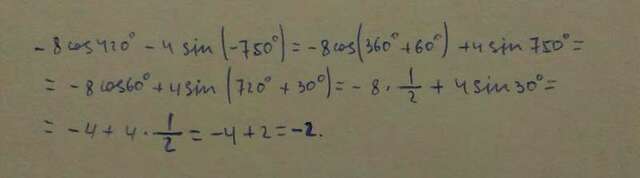 - 8 cos 420° - 4 sin (-750°) = -8 cos (360° + 60°) + 4 sin 750° =
= -8 cos 60° + 4 sin (720° + 30°) = -8 · 1/2 + 4 sin 30° =
= -4 + 4 · 1/2 = -4 + 2 = -2.